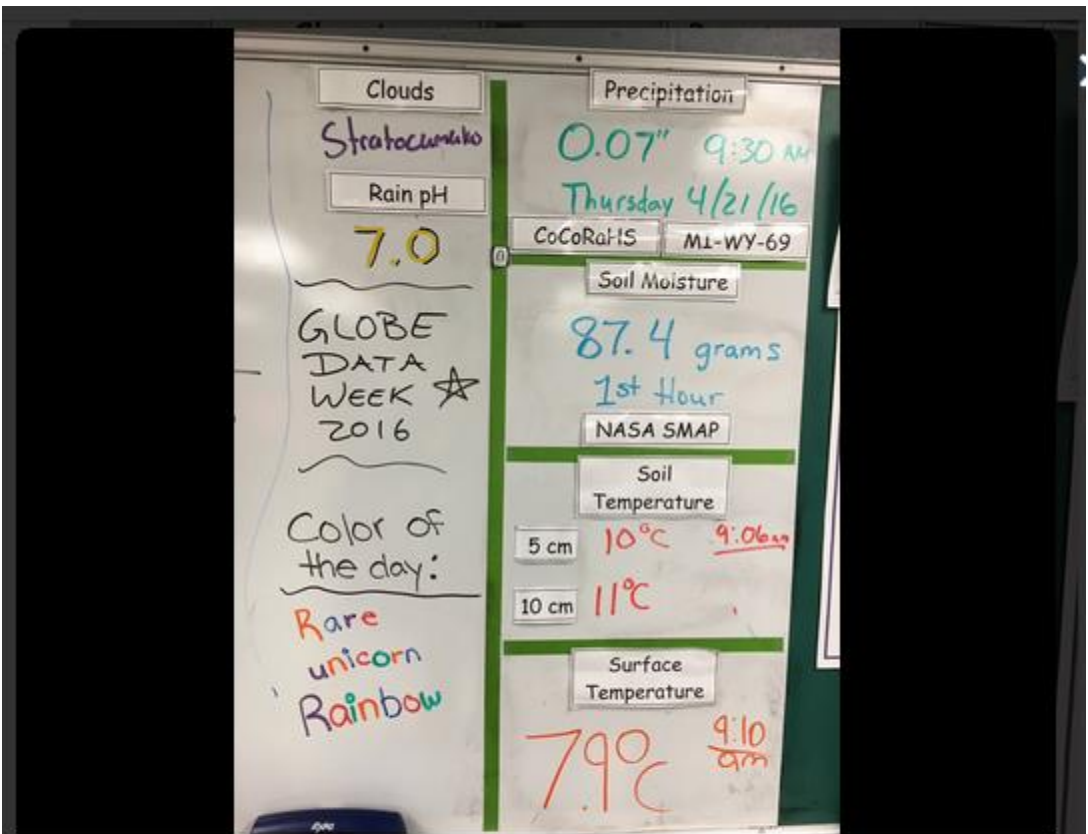 Clouds
Stratocumulo
Rain pH
7.0
GLOBE
DATA
WEEK
2016
Color of
the day:
Rare
unicorn
Rainbow
Precipitation
0.07" 9:30 AM
Thursday 4/21/16
CoCoRaHS MI-WY-69
Soil Moisture
87.4 grams
1st Hour
NASA SMAP
Soil
Temperature
5 cm 10°C 9:06am
10 cm 11°C
Surface
Temperature
7.9°C 9:10
am